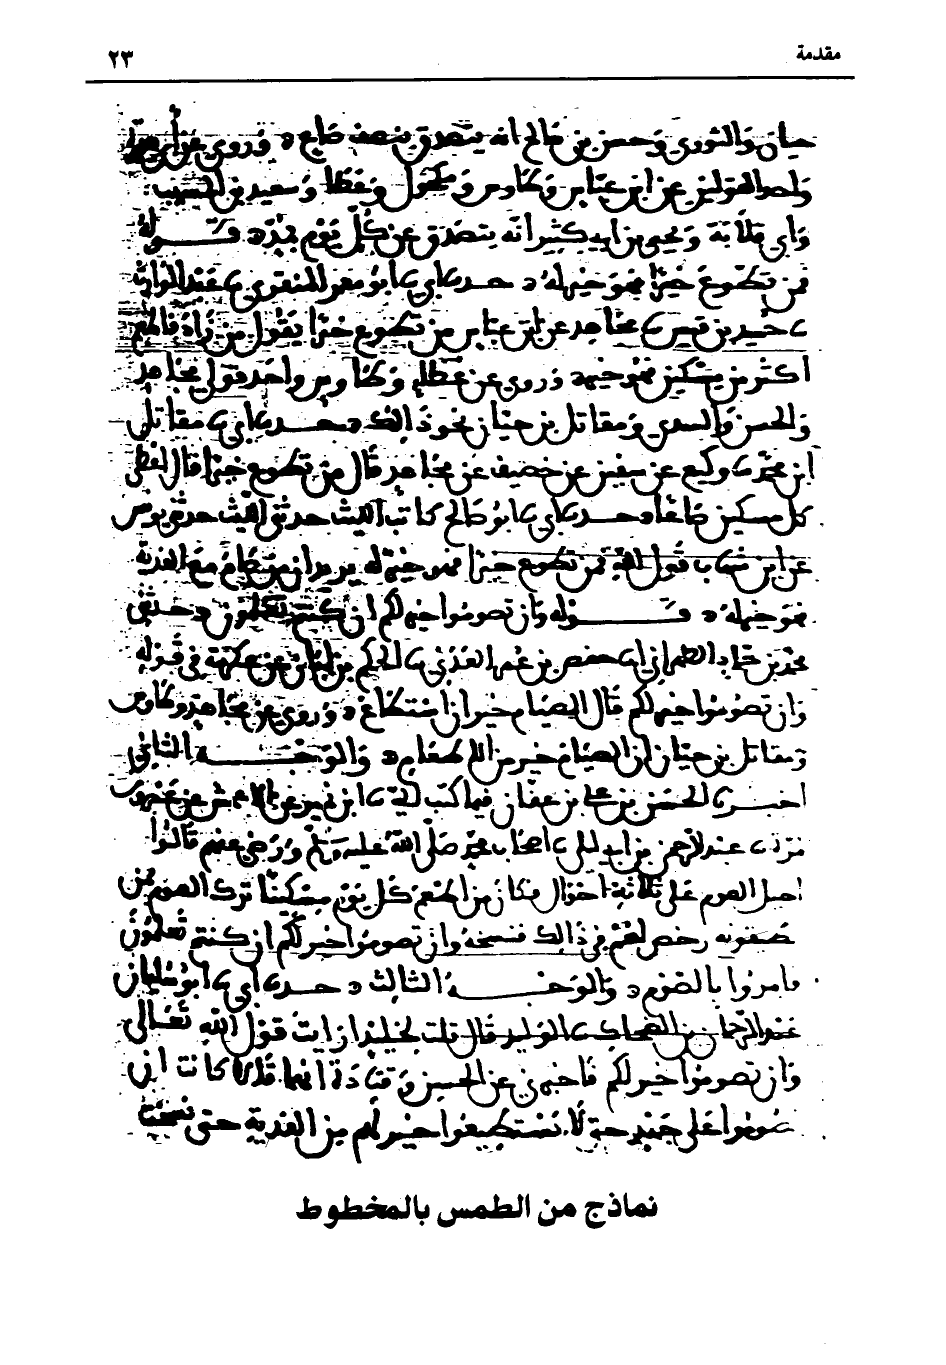 مقدمة
٢٣
حيان والثوري وحسن بن صالح انه يتصدق بنصف صاع ٥ وروي عن
واحد القولين عن ابن عباس وطاوس ومكحول وعطا وسعيد بن المسيب
وابي قلابة ويحيى بن ابي كثير انه يتصدق عن كل يوم بمد ٥ قوله
فمن تطوع خيرا فهو خير له ٥ حدثنا ابي ثنا ابو معمر المنقري ثنا عبد الوارث
ثنا حميد بن قيس عن مجاهد عن ابن عباس من تطوع خيرا يقول من زاد فاطعم
اكثر من مسكين فهو خير ٥ وروي عن عطا وطاوس واحد قولي مجاهد
والحسن والسدي ومقاتل بن حيان نحو ذالك ٥ حدثنا ابي ثنا مقاتل
ابن محمد ثنا وكيع عن سفين عن خصيف عن مجاهد قال من تطوع خيرا قال اعطى
كل مسكين صاعا ٥ حدثنا ابي ثنا ابو صالح كاتب الليث حدثني الليث حدثني يونس
عن ابن شهاب قول الله فمن تطوع خيرا فهو خير له يريد ان من صام مع الفدية
فهو خير له ٥ قوله وان تصوموا خير لكم ان كنتم تعلمون ٥ حدثني
محمد بن حماد الطهراني انا حفص بن عمر العدني ثنا الحكم بن ابان عن عكرمة في قوله
وان تصوموا خير لكم قال الصيام خير ان استطاع ٥ وروي عن مجاهد وطاوس
ومقاتل بن حيان ان الصيام خير من الاطعام ٥ والوجه الثاني
اخبرنا الحسن بن علي بن عفان فيما كتب الي ثنا ابن نمير عن الاعمش عن عمرو بن
مرة ثنا عبد الرحمن بن ابي ليلى ثنا اصحاب محمد صلى الله عليه وسلم ورضي عنهم قالوا
احيل الصوم على ثلاثة احوال فكان من اطعم كل يوم مسكينا ترك الصوم ممن
يطيقونه رخص لهم في ذالك فنسخه وان تصوموا خير لكم ان كنتم تعلمون
فامروا بالصوم ٥ والوجه الثالث ٥ حدثنا ابي ثنا ابو سليمان
عبد الرحمن بن الضحاك ثنا الوليد قال قلت لخليد ارايت قول الله تعالى
وان تصوموا خير لكم فاخبرني عن الحسن وقتادة انهما قالا كانت اي
صوموا على جهد حتى لا تستطيعوا خير لكم من الفدية حتى نسخت
نماذج من الطمس بالمخطوط